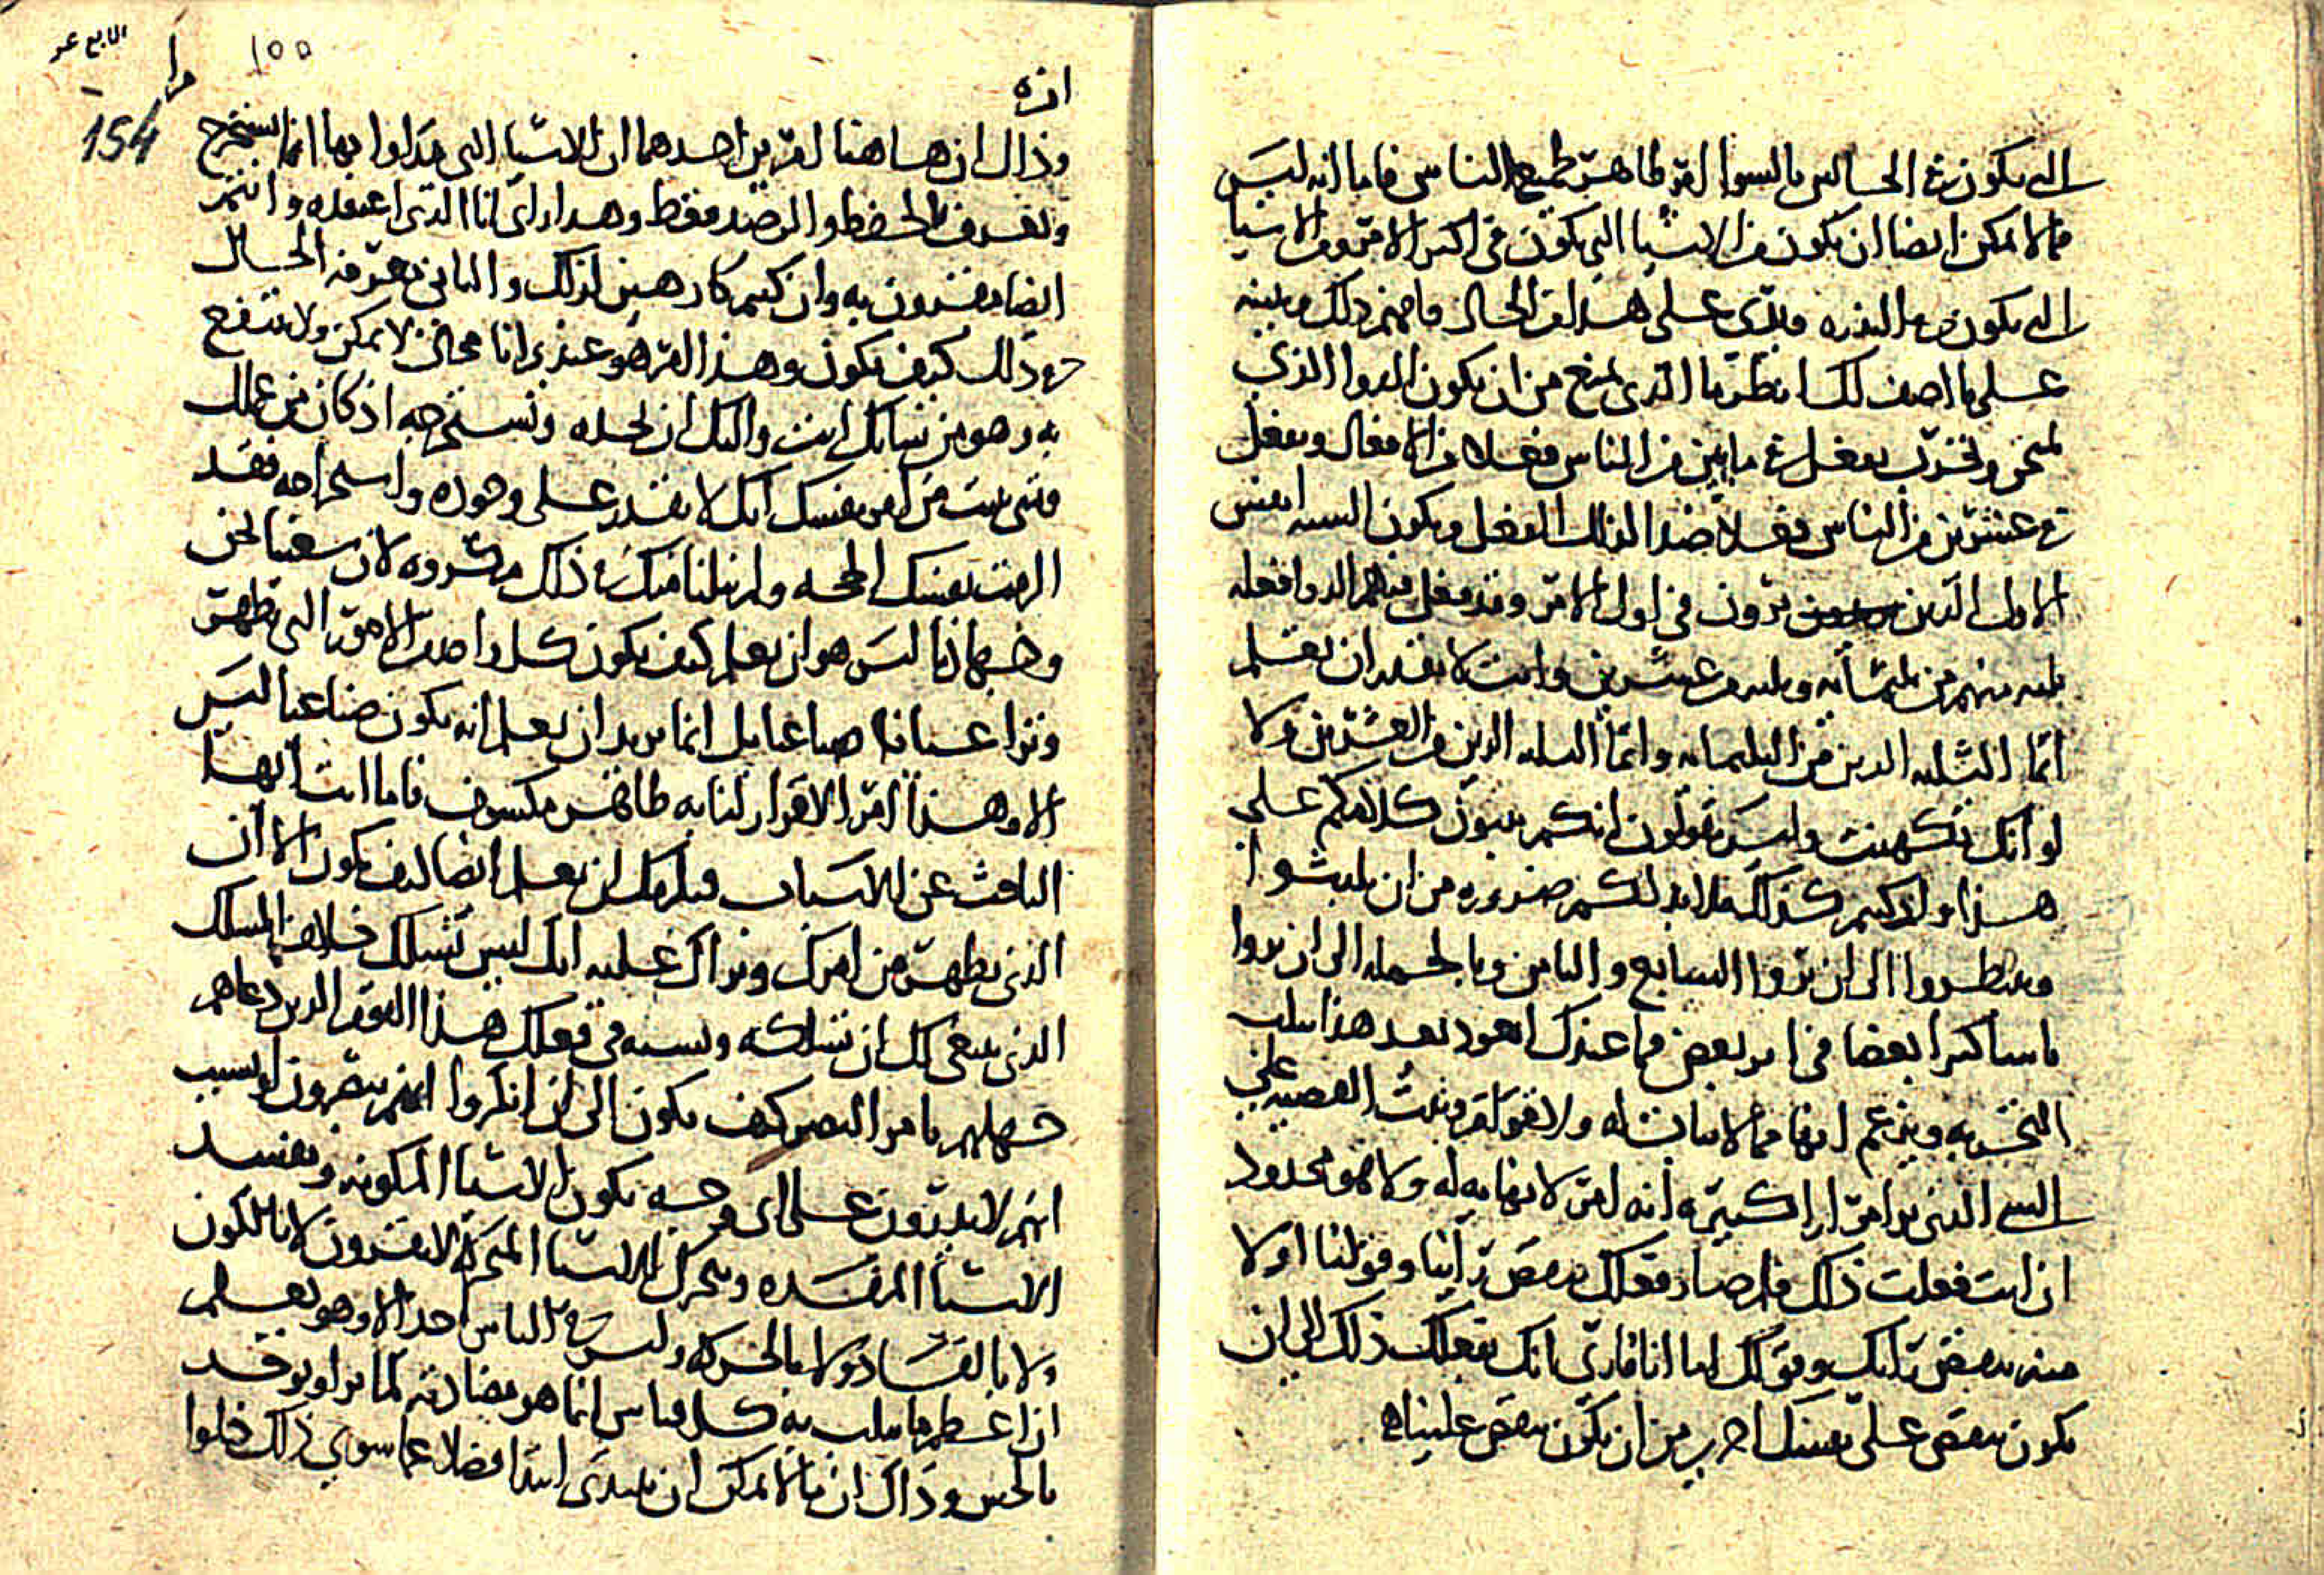 التي يكون في الحالين بالسوا امر ظاهر لجميع الناس فاما انه ليس
مما لا يمكن ايضا ان يكون من الاشيا التي يكون في اكثر الامر ومن الاشيا
التي يكون في الندره فيدري على هذا الحال فافهم ذلك وبينه
على ما اصف لك انظر ما الذي يمنع من ان يكون الدوا الذي
يمتحن ويجرب يفعل في مايتين من الناس فعلا من الافعال ويفعل
في عشرين من الناس فعلا ضد لذلك الفعل ويكون السته انفس
الاول الذين يرون في اول الامر وقد فعل فيهم الدوا فعله
ثلثه منهم من ثلثمائه وثلثه من عشرين وانت لا تقدر ان تعلم
ايما الثلثه الذين من الثلثمائه وايما الثلثه الذين من العشرين ولا
لو انك تكهنت وليس تقولون انكم تبنون كلامكم على
هذا واذ كنتم كذلك فلا بد لكم ضروره من ان تلبثوا
وتنتظروا الى ان تروا السابع والثامن وبالجمله الى ان تروا
ناسا كثيرا بعضا في اثر بعض فما عندك اتعود بعد هذا تثلب
التجربه وتزعم انها مما لا ثبات له ولا قوام وتثبت القضيه على
الشي الذي يرا مرارا كثيره انه امر لا نهايه له ولا هو محدود
ان انت فعلت ذلك فلم صار فعلك ينقض راينا وقولنا اولا
منه ينقض رايك وقولك اما انا فارى انك بفعلك ذلك الى ان
يكون تنقض على نفسك احرى من ان تكون تنقض علينا ه
١٥٥
154
انه
وذاك ان هاهنا امرين احدهما ان الاشيا التي تداوا بها انما تستخرج
وتعرف بالحفظ والرصد فقط وهذا راي انا الذي اعتقده وانتم
ايضا مقرون به وان كنتم كارهين لذلك والثاني معرفه الحال
في ذلك كيف يكون وهذا امر هو عندي انا محال لا يمكن ولا ينتفع
به وهو من شانك انت واليك ان تجده وتستخرجه اذ كان من عملك
فمتى بينت من امر نفسك انك لا تقدر على وجوده واستخراجه فقد
الزمت نفسك الحجه وانزلنا منك في ذلك لان سعينا نحن
وجهادنا ليس هو ان نعلم كيف يكون كل واحد من الامور التي تظهر
وترا عيانا صناعيا بل انما نريد ان نعلم انه يكون صناعيا ليس
الا وهذا امر الاقرار لنا به ظاهر مكشوف فاما انت ايها
الباحث عن الاسباب فيلزمك ان تعلم ايضا كيف يكون الا ان
الذي يظهر من امرك ونراك عليه انك ليس تسلك خلاف المسلك
الذي ينبغي لك ان تسلكه وتشبه في فعلك هذا القوم الذين دعاهم
جهلهم بامر البصر كيف يكون الى ان انكروا انهم يبصرون او بسبب
انهم لا يدرون على اي وجه يكون الاشيا المكونه وتفسد
الاشيا المفسده وتتحرك الاشيا المتحركه لا يقرون لا بالكون
ولا بالفساد ولا بالحركه وليس في الناس احد الا وهو يعلم
ان اعظم ما يثلب به كل قياس انما هو مضادته لما يرا ويوجد
بالحس وذاك ان ما لا يمكن ان يبتدي ابتدا فضلا عما سوى ذلك خلوا